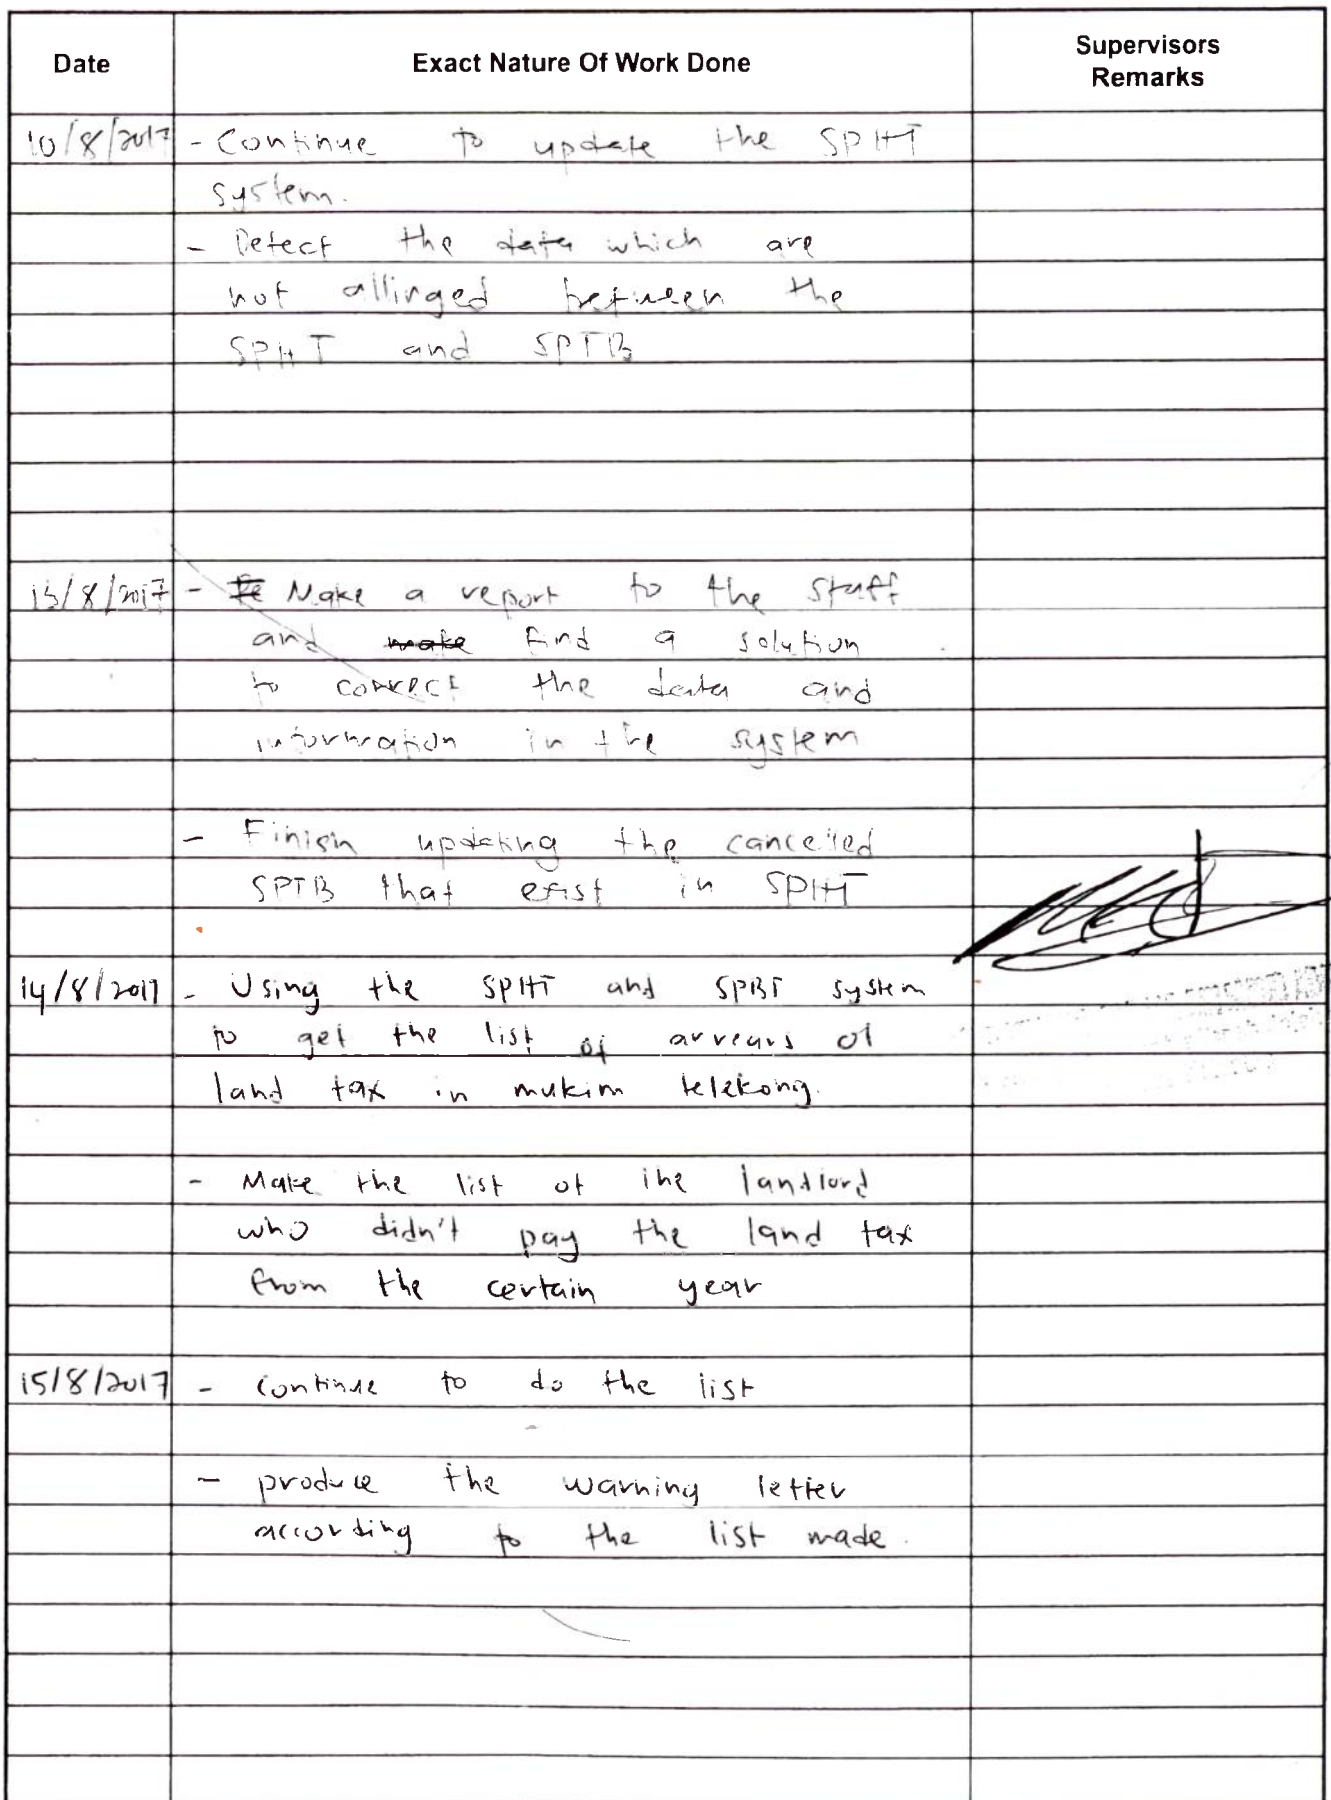 Date Exact Nature Of Work Done Supervisors Remarks
10/8/2017 - Continue to update the SPHT
system.
- Detect the data which are
not allinged between the
SPHT and SPTB
13/8/2017 - Make a report to the staff
and make find a solution
to correct the data and
information in the system
- Finish updating the cancelled
SPTB that exist in SPHT
14/8/2017 - Using the SPHT and SPBT system
to get the list of arrears of
land tax in mukim telekong.
- Make the list of the landlord
who didn't pay the land tax
from the certain year
15/8/2017 - continue to do the list
- produce the warning letter
according to the list made.